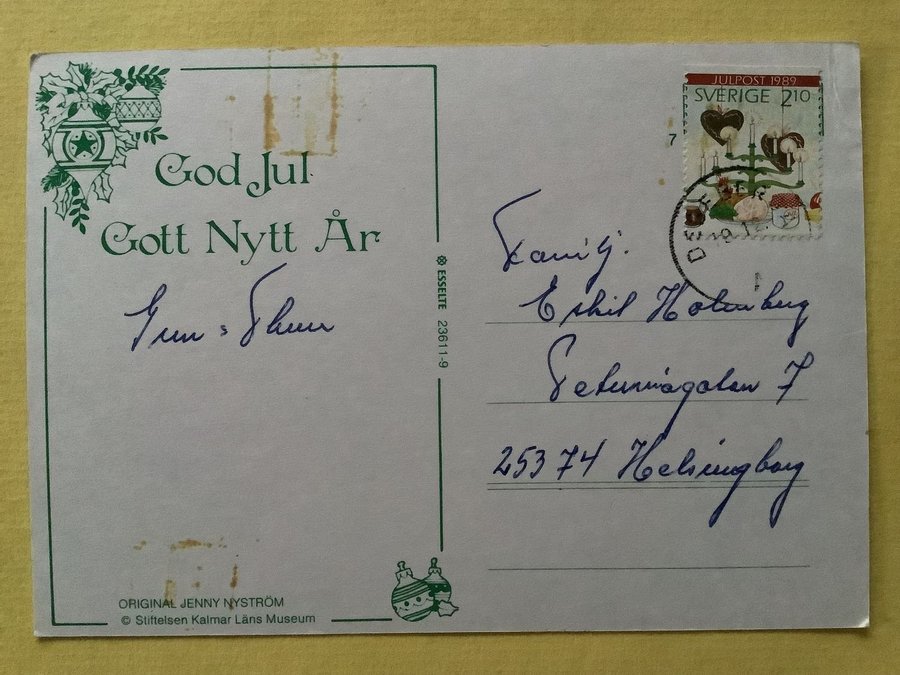 God Jul
Gott Nytt År
Gun
ESSELTE 23611-9
ORIGINAL JENNY NYSTRÖM
© Stiftelsen Kalmar Läns Museum
JULPOST 1989
SVERIGE 210
7
Familj.
Eskil Holmberg
Petuniagatan 7
25374 Helsingborg